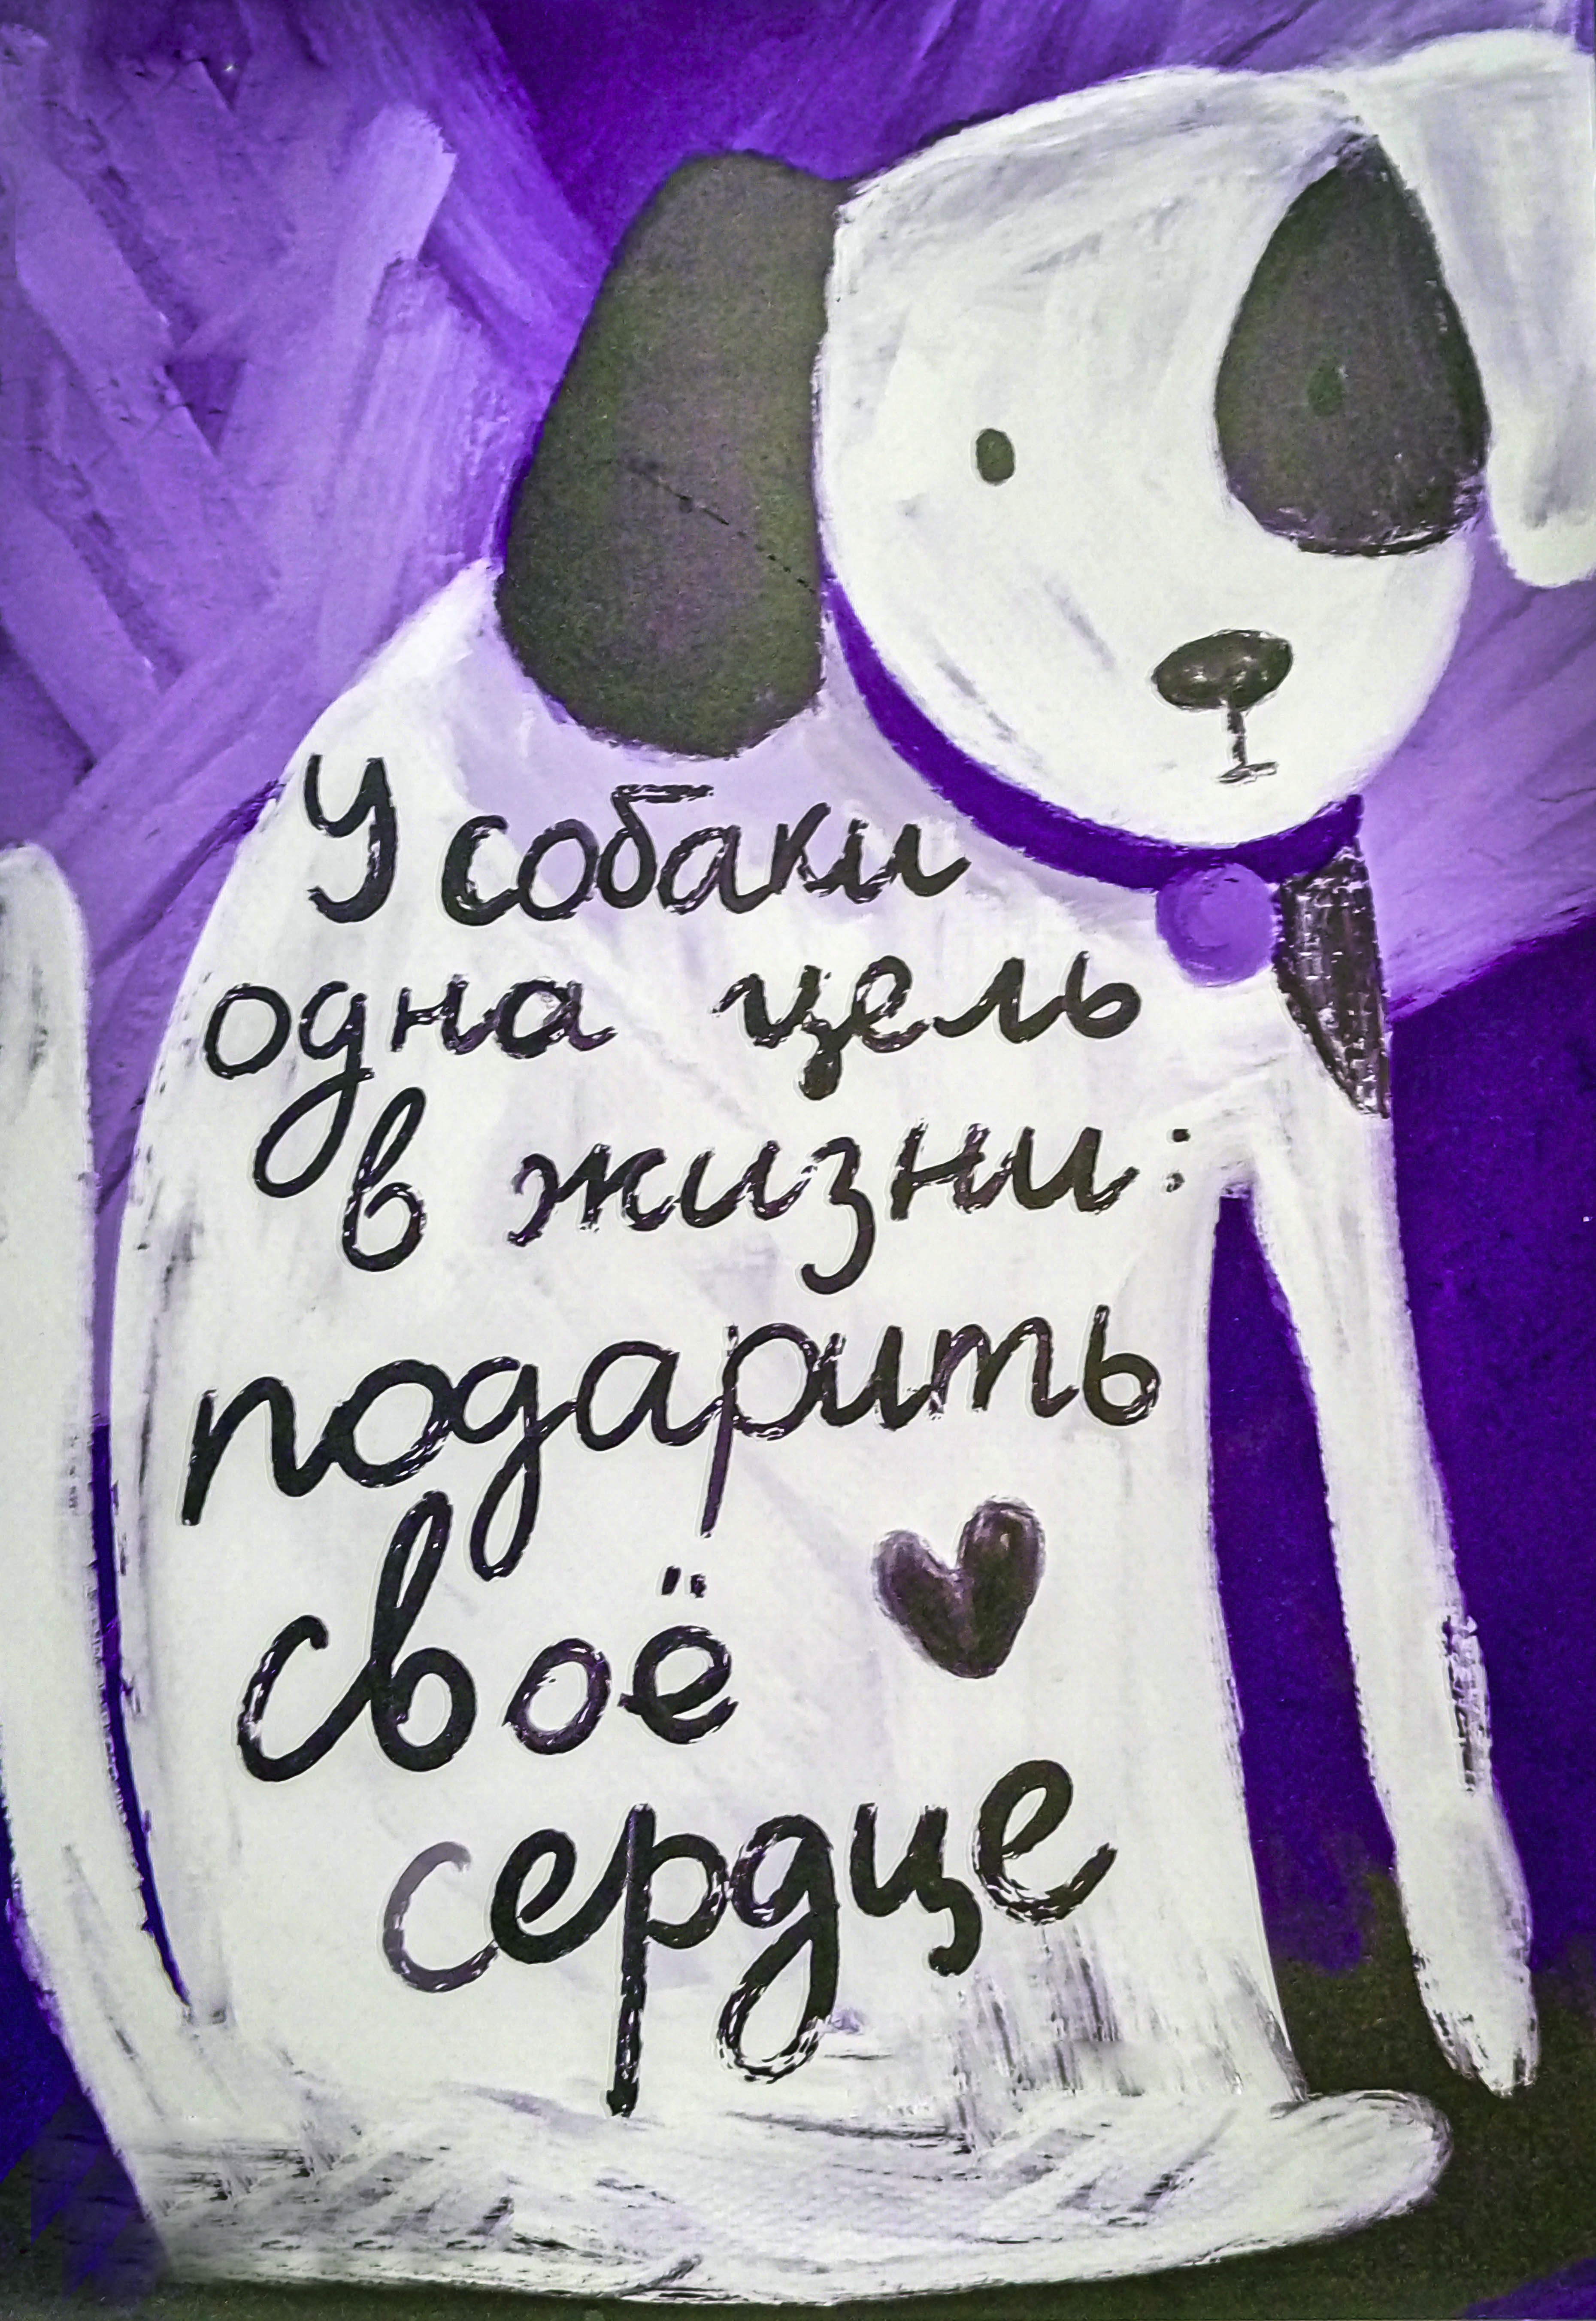 У собаки
одна цель
в жизни:
подарить
своё
сердце